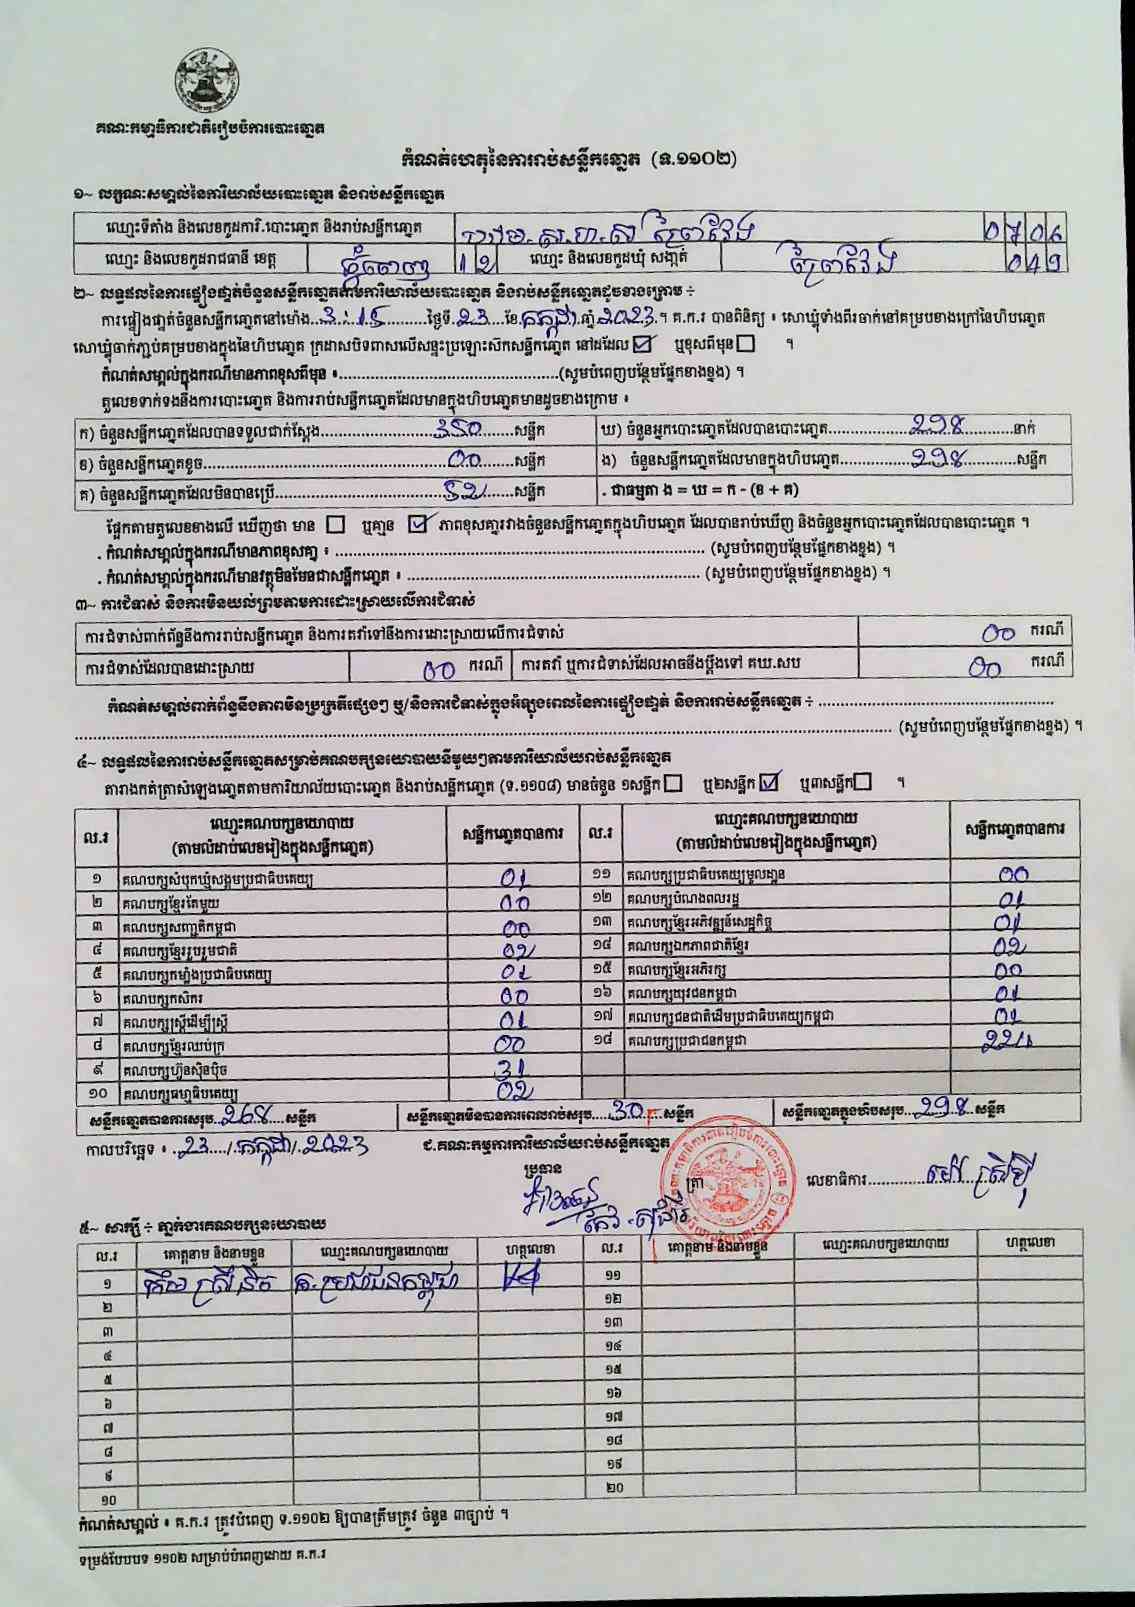 គណៈកម្មាធិការជាតិរៀបចំការបោះឆ្នោត
កំណត់ហេតុនៃការរាប់សន្លឹកឆ្នោត (ទ.១១០២)
១~ លក្ខណៈសម្គាល់នៃការិយាល័យបោះឆ្នោត និងរាប់សន្លឹកឆ្នោត
ឈ្មោះទីតាំង និងលេខកូដការិ.បោះឆ្នោត និងរាប់សន្លឹកឆ្នោត ព្រៃវែង
ឈ្មោះ និងលេខកូដរាជធានី ខេត្ត ភ្នំពេញ 12 ឈ្មោះ និងលេខកូដឃុំ សង្កាត់ ព្រៃវែង 049
២~ លទ្ធផលនៃការផ្ទៀងផ្ទាត់ចំនួនសន្លឹកឆ្នោតតាមការិយាល័យបោះឆ្នោត និងរាប់សន្លឹកឆ្នោតដូចខាងក្រោម ÷
ការផ្ទៀងផ្ទាត់ចំនួនសន្លឹកឆ្នោតនៅម៉ោង 3:15 ថ្ងៃទី 23 ខែ កក្កដា ឆ្នាំ 2023 ។ គ.ក.រ បានពិនិត្យ ៖ សោឃ្លុំទាំងពីរចាក់នៅគម្របខាងក្រៅនៃហិបឆ្នោត
សោឃ្លុំចាក់ភ្ជាប់គម្របខាងក្នុងនៃហិបឆ្នោត ក្រដាសបិទពាសលើសន្ទះប្រឡោះស៊កសន្លឹកឆ្នោត នៅដដែល ☑ ឬខុសពីមុន ☐ ។
កំណត់សម្គាល់ក្នុងករណីមានភាពខុសពីមុន ៖ (សូមបំពេញបន្ថែមផ្នែកខាងខ្នង) ។
តួលេខទាក់ទងនឹងការបោះឆ្នោត និងការរាប់សន្លឹកឆ្នោតដែលមានក្នុងហិបឆ្នោតមានដូចខាងក្រោម ៖
ក) ចំនួនសន្លឹកឆ្នោតដែលបានទទួលជាក់ស្តែង 350 សន្លឹក ឃ) ចំនួនអ្នកបោះឆ្នោតដែលបានបោះឆ្នោត 298 នាក់
ខ) ចំនួនសន្លឹកឆ្នោតខូច 00 សន្លឹក ង) ចំនួនសន្លឹកឆ្នោតដែលមានក្នុងហិបឆ្នោត 298 សន្លឹក
គ) ចំនួនសន្លឹកឆ្នោតដែលមិនបានប្រើ 52 សន្លឹក . ជាធម្មតា ង = ឃ = ក - (ខ + គ)
ផ្អែកតាមតួលេខខាងលើ ឃើញថា មាន ☐ ឬគ្មាន ☑ ភាពខុសគ្នារវាងចំនួនសន្លឹកឆ្នោតក្នុងហិបឆ្នោត ដែលបានរាប់ឃើញ និងចំនួនអ្នកបោះឆ្នោតដែលបានបោះឆ្នោត ។
. កំណត់សម្គាល់ក្នុងករណីមានភាពខុសគ្នា ៖ (សូមបំពេញបន្ថែមផ្នែកខាងខ្នង) ។
. កំណត់សម្គាល់ក្នុងករណីមានវត្ថុមិនមែនជាសន្លឹកឆ្នោត ៖ (សូមបំពេញបន្ថែមផ្នែកខាងខ្នង) ។
៣~ ការជំទាស់ និងការមិនយល់ព្រមតាមការដោះស្រាយលើការជំទាស់
ការជំទាស់ពាក់ព័ន្ធនឹងការរាប់សន្លឹកឆ្នោត និងការតវ៉ាទៅនឹងការដោះស្រាយលើការជំទាស់ 00 ករណី
ការជំទាស់ដែលបានដោះស្រាយ 00 ករណី ការតវ៉ា ឬការជំទាស់ដែលអាចនឹងប្តឹងទៅ គឃ.សប 00 ករណី
កំណត់សម្គាល់ពាក់ព័ន្ធនឹងភាពមិនប្រក្រតីផ្សេងៗ ឬ/និងការជំទាស់ក្នុងអំឡុងពេលនៃការផ្ទៀងផ្ទាត់ និងការរាប់សន្លឹកឆ្នោត ÷
(សូមបំពេញបន្ថែមផ្នែកខាងខ្នង) ។
៤~ លទ្ធផលនៃការរាប់សន្លឹកឆ្នោតសម្រាប់គណបក្សនយោបាយនីមួយៗតាមការិយាល័យរាប់សន្លឹកឆ្នោត
តារាងកត់ត្រាសំឡេងឆ្នោតតាមការិយាល័យបោះឆ្នោត និងរាប់សន្លឹកឆ្នោត (ទ.១១០៨) មានចំនួន ១សន្លឹក ☐ ឬ២សន្លឹក ☑ ឬ៣សន្លឹក ☐ ។
ល.រ ឈ្មោះគណបក្សនយោបាយ (តាមលំដាប់លេខរៀងក្នុងសន្លឹកឆ្នោត) សន្លឹកឆ្នោតបានការ ល.រ ឈ្មោះគណបក្សនយោបាយ (តាមលំដាប់លេខរៀងក្នុងសន្លឹកឆ្នោត) សន្លឹកឆ្នោតបានការ
១ គណបក្សសំបុកឃ្មុំសង្គមប្រជាធិបតេយ្យ 01 ១១ គណបក្សប្រជាធិបតេយ្យមូលដ្ឋាន 00
២ គណបក្សខ្មែរតែមួយ 00 ១២ គណបក្សបំណងពលរដ្ឋ 01
៣ គណបក្សសញ្ជាតិកម្ពុជា 00 ១៣ គណបក្សខ្មែរអភិវឌ្ឍន៍សេដ្ឋកិច្ច 01
៤ គណបក្សខ្មែររួបរួមជាតិ 02 ១៤ គណបក្សឯកភាពជាតិខ្មែរ 02
៥ គណបក្សកម្លាំងប្រជាធិបតេយ្យ 01 ១៥ គណបក្សខ្មែរអភិរក្ស 00
៦ គណបក្សកសិករ 00 ១៦ គណបក្សយុវជនកម្ពុជា 01
៧ គណបក្សស្ត្រីដើម្បីស្ត្រី 01 ១៧ គណបក្សជនជាតិដើមប្រជាធិបតេយ្យកម្ពុជា 01
៨ គណបក្សខ្មែរឈប់ក្រ 00 ១៨ គណបក្សប្រជាជនកម្ពុជា
៩ គណបក្សហ៊្វុនស៊ិនប៉ិច 31
១០ គណបក្សធម្មាធិបតេយ្យ 02
សន្លឹកឆ្នោតបានការសរុប 268 សន្លឹក សន្លឹកឆ្នោតមិនបានការពេលរាប់សរុប 30 សន្លឹក សន្លឹកឆ្នោតក្នុងហិបសរុប 298 សន្លឹក
កាលបរិច្ឆេទ ៖ 23 / កក្កដា / 2023 ជ.គណៈកម្មការការិយាល័យរាប់សន្លឹកឆ្នោត
ប្រធាន ត្រា លេខាធិការ
៥~ សាក្សី ÷ ភ្នាក់ងារគណបក្សនយោបាយ
ល.រ គោត្តនាម និងនាមខ្លួន ឈ្មោះគណបក្សនយោបាយ ហត្ថលេខា ល.រ គោត្តនាម និងនាមខ្លួន ឈ្មោះគណបក្សនយោបាយ ហត្ថលេខា
១ គ.ប្រជាជនកម្ពុជា ១១
២ ១២
៣ ១៣
៤ ១៤
៥ ១៥
៦ ១៦
៧ ១៧
៨ ១៨
៩ ១៩
១០ ២០
កំណត់សម្គាល់ ៖ គ.ក.រ ត្រូវបំពេញ ទ.១១០២ ឱ្យបានត្រឹមត្រូវ ចំនួន ៣ច្បាប់ ។
ទម្រង់បែបបទ ១១០២ សម្រាប់បំពេញដោយ គ.ក.រ